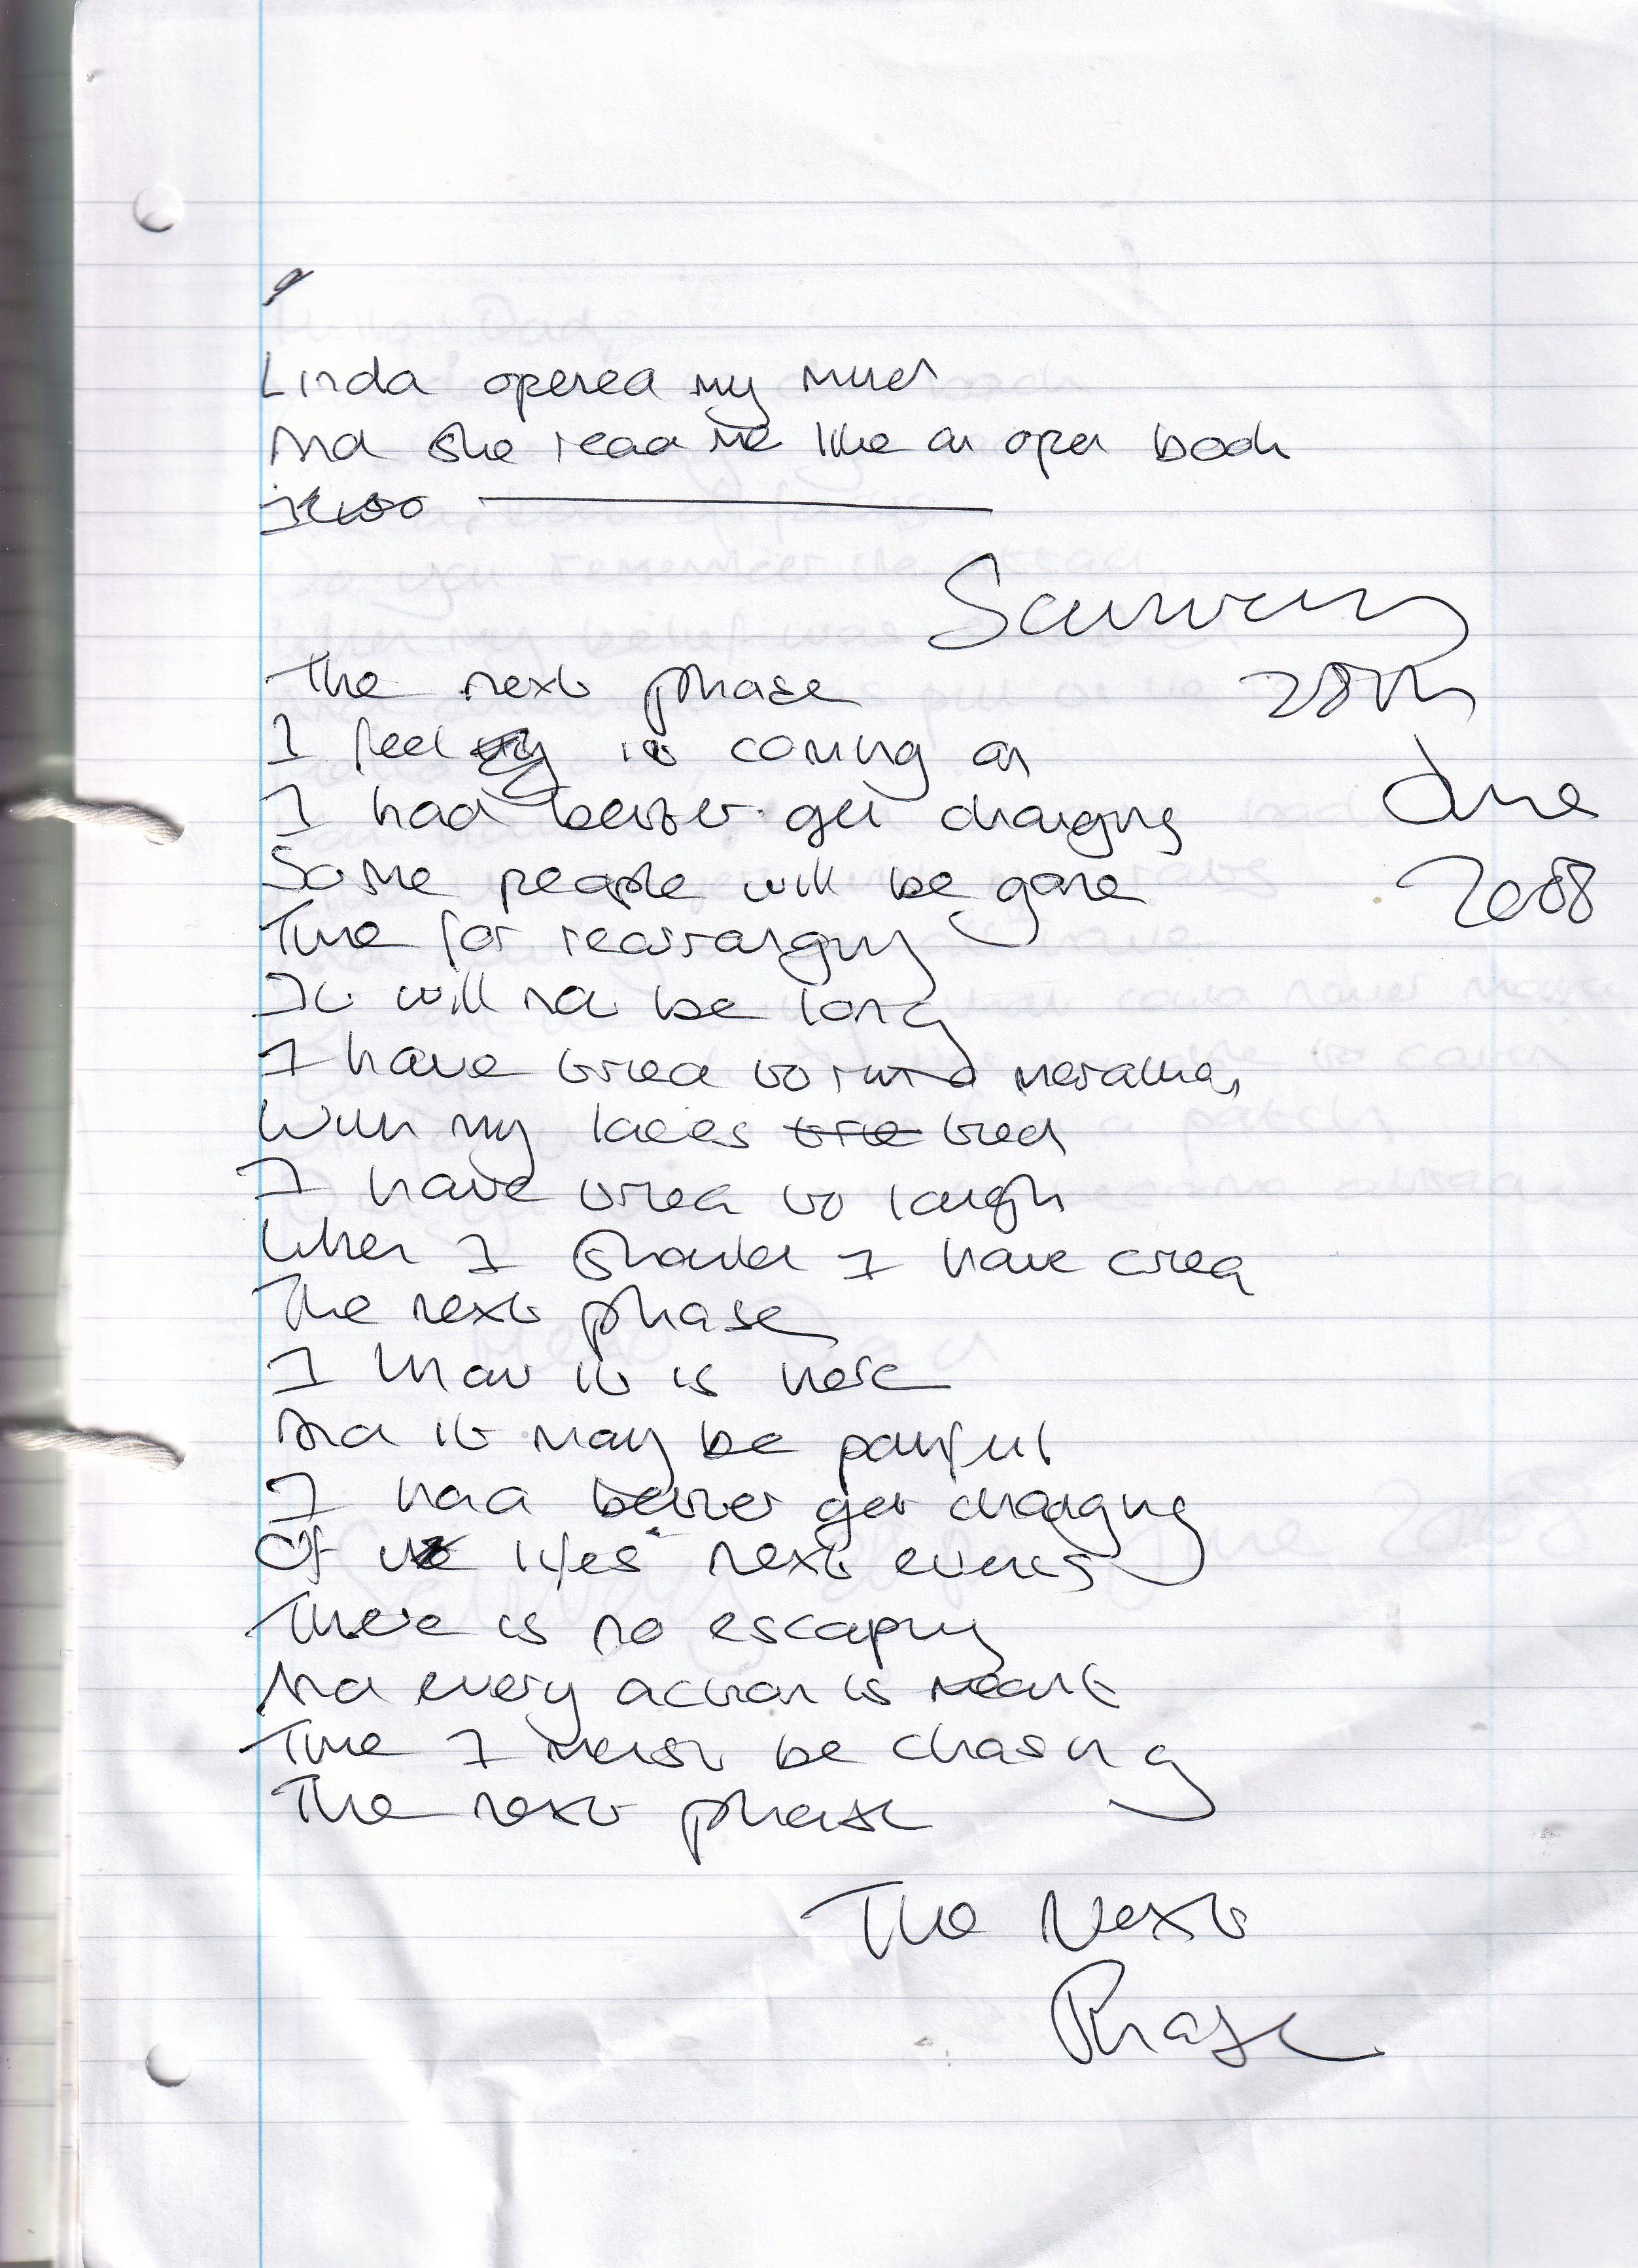 Linda opened my mind
And she read me like an open book
Saturday
28th
June
2008
The next phase
I feel is coming on
I had better get changing
Some people will be gone
Time for rearranging
It will not be long
I have tried to run a marathon
With my laces tied
I have tried to laugh
When I should I have cried
The next phase
I know it is here
And it may be painful
I had better get changing
Of lifes next events
There is no escaping
And every action is meant
Time I must be chasing
The next phase
The Next
Phase